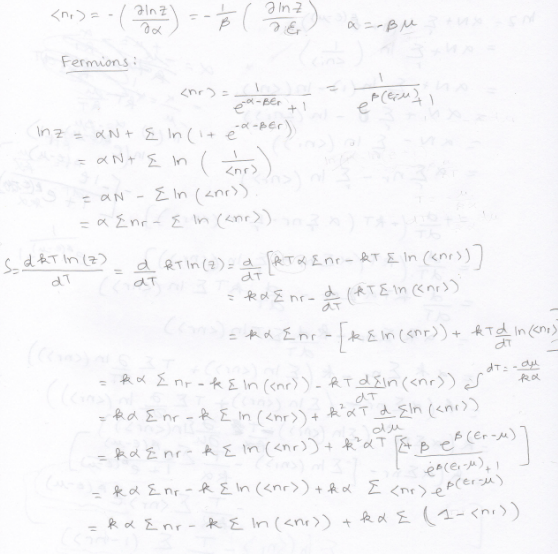 <nr> = -(∂lnZ/∂α) = -1/β (∂lnZ/∂εr) α = -βμ
Fermions:
<nr> = 1/(e^(-α-βεr) + 1) = 1/(e^(β(εr-μ)) + 1)
lnz = αN + Σ ln(1 + e^(-α-βεr))
= αN + Σ ln (1/<nr>)
= αN - Σ ln(<nr>)
= α Σnr - Σ ln(<nr>)
S = d kT ln(z)/dT = d/dT kT ln(z) = d/dT [kTα Σnr - kT Σ ln(<nr>)]
= kα Σnr - d/dT (kT Σ ln(<nr>))
= kα Σnr - [k Σ ln(<nr>) + kT d/dT ln(<nr>)]
= kα Σnr - k Σ ln(<nr>) - kT d/dT Σln(<nr>) dT = -dμ/kα
= kα Σnr - k Σ ln(<nr>) + k²αT d/dμ Σln(<nr>)
= kα Σnr - k Σ ln(<nr>) + k²αT [Σ + β e^(β(εr-μ)) / e^(β(εr-μ)) + 1]
= kα Σnr - k Σ ln(<nr>) + kα Σ <nr> e^(β(εr-μ))
= kα Σnr - k Σ ln(<nr>) + kα Σ (1-<nr>)